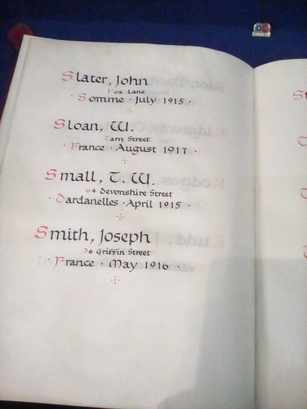 Slater, John
Fox Lane
Somme · July 1915 ·
Sloan, W.
Tarn Street
· France · August 1917 ·
Small, T. W.
64 Devonshire Street
· Dardanelles · April 1915 ·
Smith, Joseph
36 Griffin Street
· France · May 1916 ·